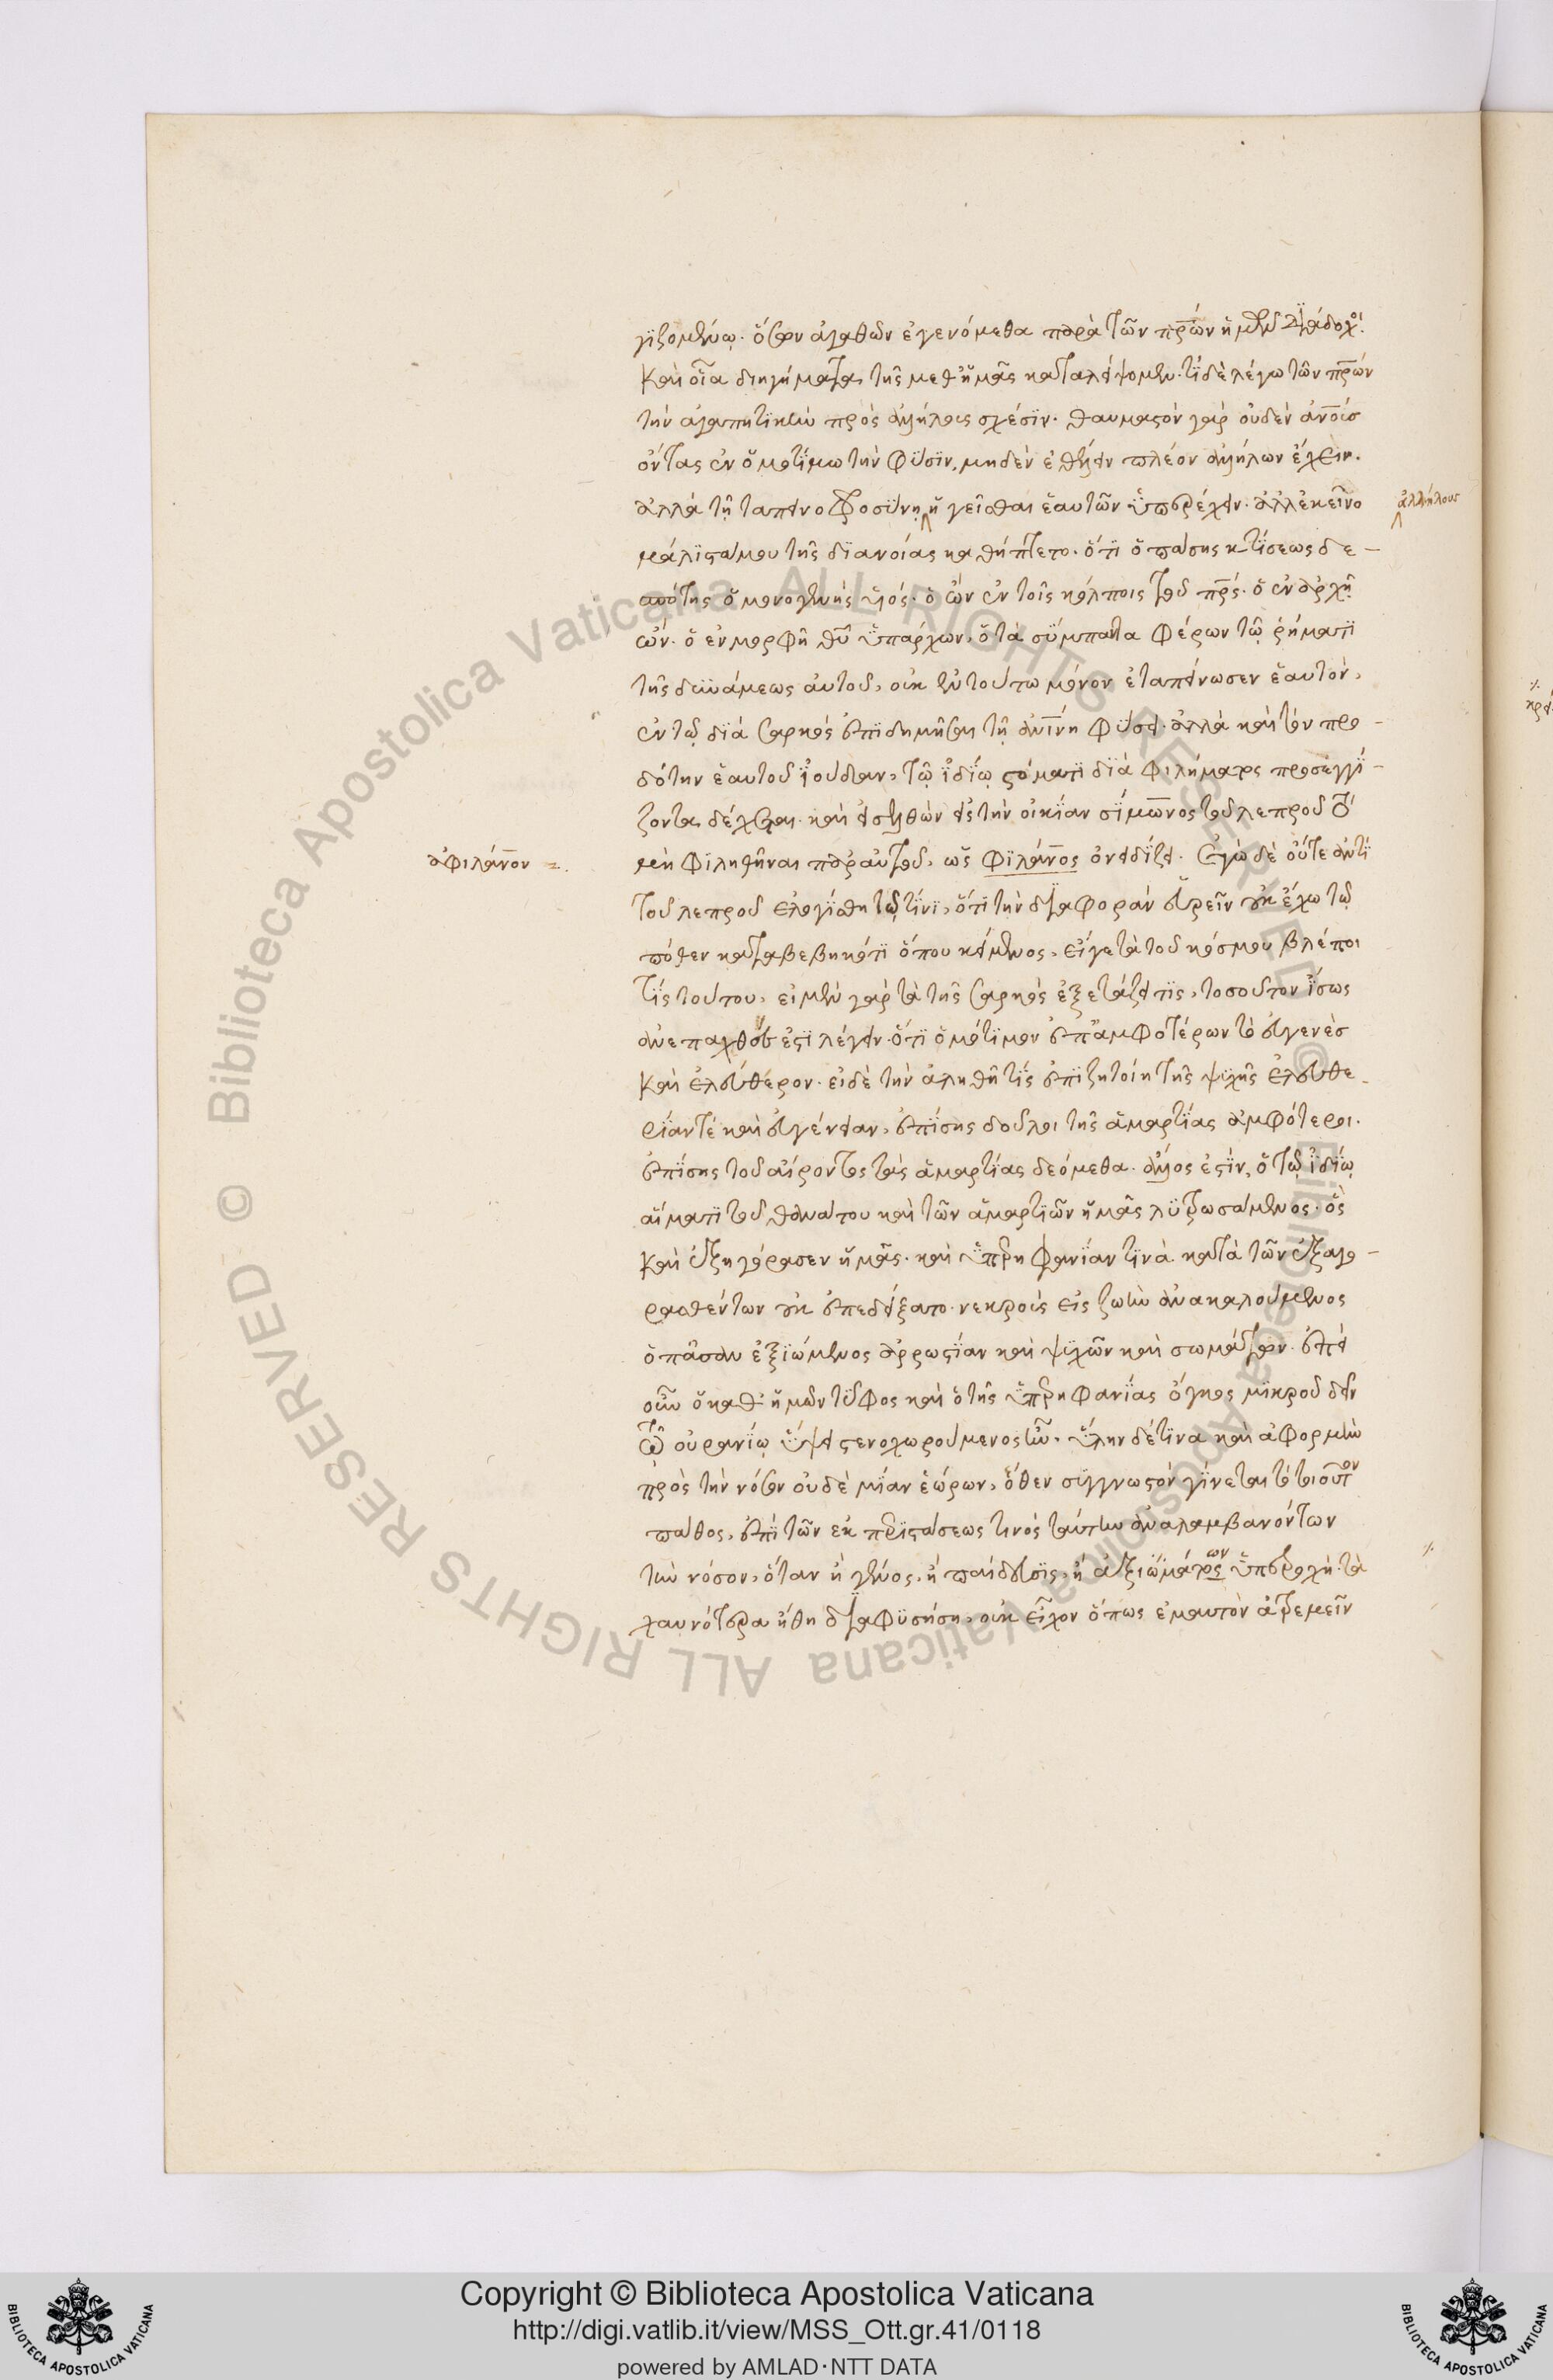 γιζομένω. ὅσων ἀγαθῶν ἐγενόμεθα παρὰ τῶν πρ̅ων ἡμῶν διάδοχοι.
καὶ οἷα διηγήματα τῆς μεθ' ἡμᾶς καταλείψομεν. τί δὲ λέγω τῶν πρ̅ων
τὴν ἀγαπητικὴν πρὸς ἀλλήλοις σχέσιν. θαυμαστὸν γὰρ οὐδὲν ἀν̅οις
ὄντας ἐν ὁμοτίμω τὴν φύσιν, μηδὲν ἐθέλειν πλέον ἀλλήλων ἔχειν.
ἀλλὰ τῇ ταπεινοφροσύνῃ ἡγεῖσθαι ἑαυτῶν ὑπερέχειν. ἀλλ' ἐκεῖνο
ἀλλήλους
μάλιστα μου τῆς διανοίας καθήπτετο. ὅτι ὁ πάσης κτίσεως δε-
σπότης ὁ μονογενὴς υἱός. ὁ ὢν ἐν τοῖς κόλποις τοῦ πρ̅ς. ὁ ἐν ἀρχῇ
ὤν. ὁ ἐν μορφῇ θυ̅ ὑπάρχων, ὁ τὰ σύμπαντα φέρων τῷ ῥήματι
τῆς δυνάμεως αὐτοῦ, οὐκ ἐν τούτω μόνον ἐταπείνωσεν ἑαυτὸν,
ἐν τῷ διὰ σαρκὸς ἐπιδημῆσαι τῇ ἀν̅ινη φύσει. ἀλλὰ καὶ τὸν προ-
δότην ἑαυτοῦ ἰούδαν, τῷ ἰδίῳ στόματι διὰ φιλήματος προσεγγί-
ζοντα δέχεται. καὶ εἰσελθὼν εἰς τὴν οἰκίαν σίμωνος τοῦ λεπροῦ
ἀφιλάν̅ον
μὴ φιληθῆναι παρ' αὐτοῦ, ὡς φιλάν̅ος ὀνειδίζει. Ἐγὼ δὲ οὔτε ἀντὶ
τοῦ λεπροῦ ἐλογίσθη τῷ τινι, ὅτι τὴν διαφορὰν εὑρεῖν οὐκ ἔχω τῷ
πόθεν καταβεβηκότι ὅπου κείμενος, εἴγε τὰ τοῦ κόσμου βλέποι
τίς τούτου, εἰ μὲν γὰρ τὰ τῆς σαρκὸς ἐξετάζει τις, τοσοῦτον ἴσως
ἀνεπαχθὲς ἐστὶ λέγειν. ὅτι ὁμότιμον ἐπ' ἀμφοτέρων τὸ εὐγενὲς
καὶ ἐλεύθερον. εἰ δὲ τὴν ἀληθῆ τίς ἐπιζητοίη τῆς ψυχῆς ἐλευθε-
ρίαν τὲ καὶ εὐγένειαν, ἐπίσης δοῦλοι τῆς ἁμαρτίας ἀμφότεροι.
ἐπίσης τοῦ αἴροντος τὰς ἁμαρτίας δεόμεθα. ἄλλος ἐστὶν, ὁ τῷ ἰδίῳ
αἵματι τοῦ θανάτου καὶ τῶν ἁμαρτιῶν ἡμᾶς λυτρωσάμενος. ὃς
καὶ ἐξηγόρασεν ἡμᾶς. καὶ ὑπερηφανίαν τινὰ κατὰ τῶν ἐξαγο-
ρασθέντων οὐκ ἐπεδείξατο. νεκροὺς εἰς ζωὴν ἀνακαλούμενος
ὁ πᾶσαν ἐξιώμενος ἀρρωστίαν καὶ ψυχῶν καὶ σωμάτων. ἐπεὶ
οὖν ὁ καθ' ἡμῶν τῦφος καὶ ὁ τῆς ὑπερηφανίας ὄγκος μικροῦ δεῖν
τῷ οὐρανίῳ ὕψει στενοχωρούμενος ἦν. ὕλην δέ τινα καὶ ἀφορμὴν
πρὸς τὴν νόσον οὐδὲ μίαν ἑώρων, ὅθεν συγγνωστὸν γίνεται τὸ τοιοῦτον
πάθος, ἐπὶ τῶν ἐκ περιστάσεως τινὸς ταύτην ἀναλαμβανόντων
τὴν νόσον, ὅταν ἢ γένος, ἢ παίδευσις, ἢ ἀξιώματος ων ὑπεροχὴ. τὰ
χαυνότερα ἤθη διαφυσήση, οὐκ εἶχον ὅπως ἐμαυτὸν ἀτρεμεῖν
Copyright © Biblioteca Apostolica Vaticana
http://digi.vatlib.it/view/MSS_Ott.gr.41/0118
powered by AMLAD·NTT DATA